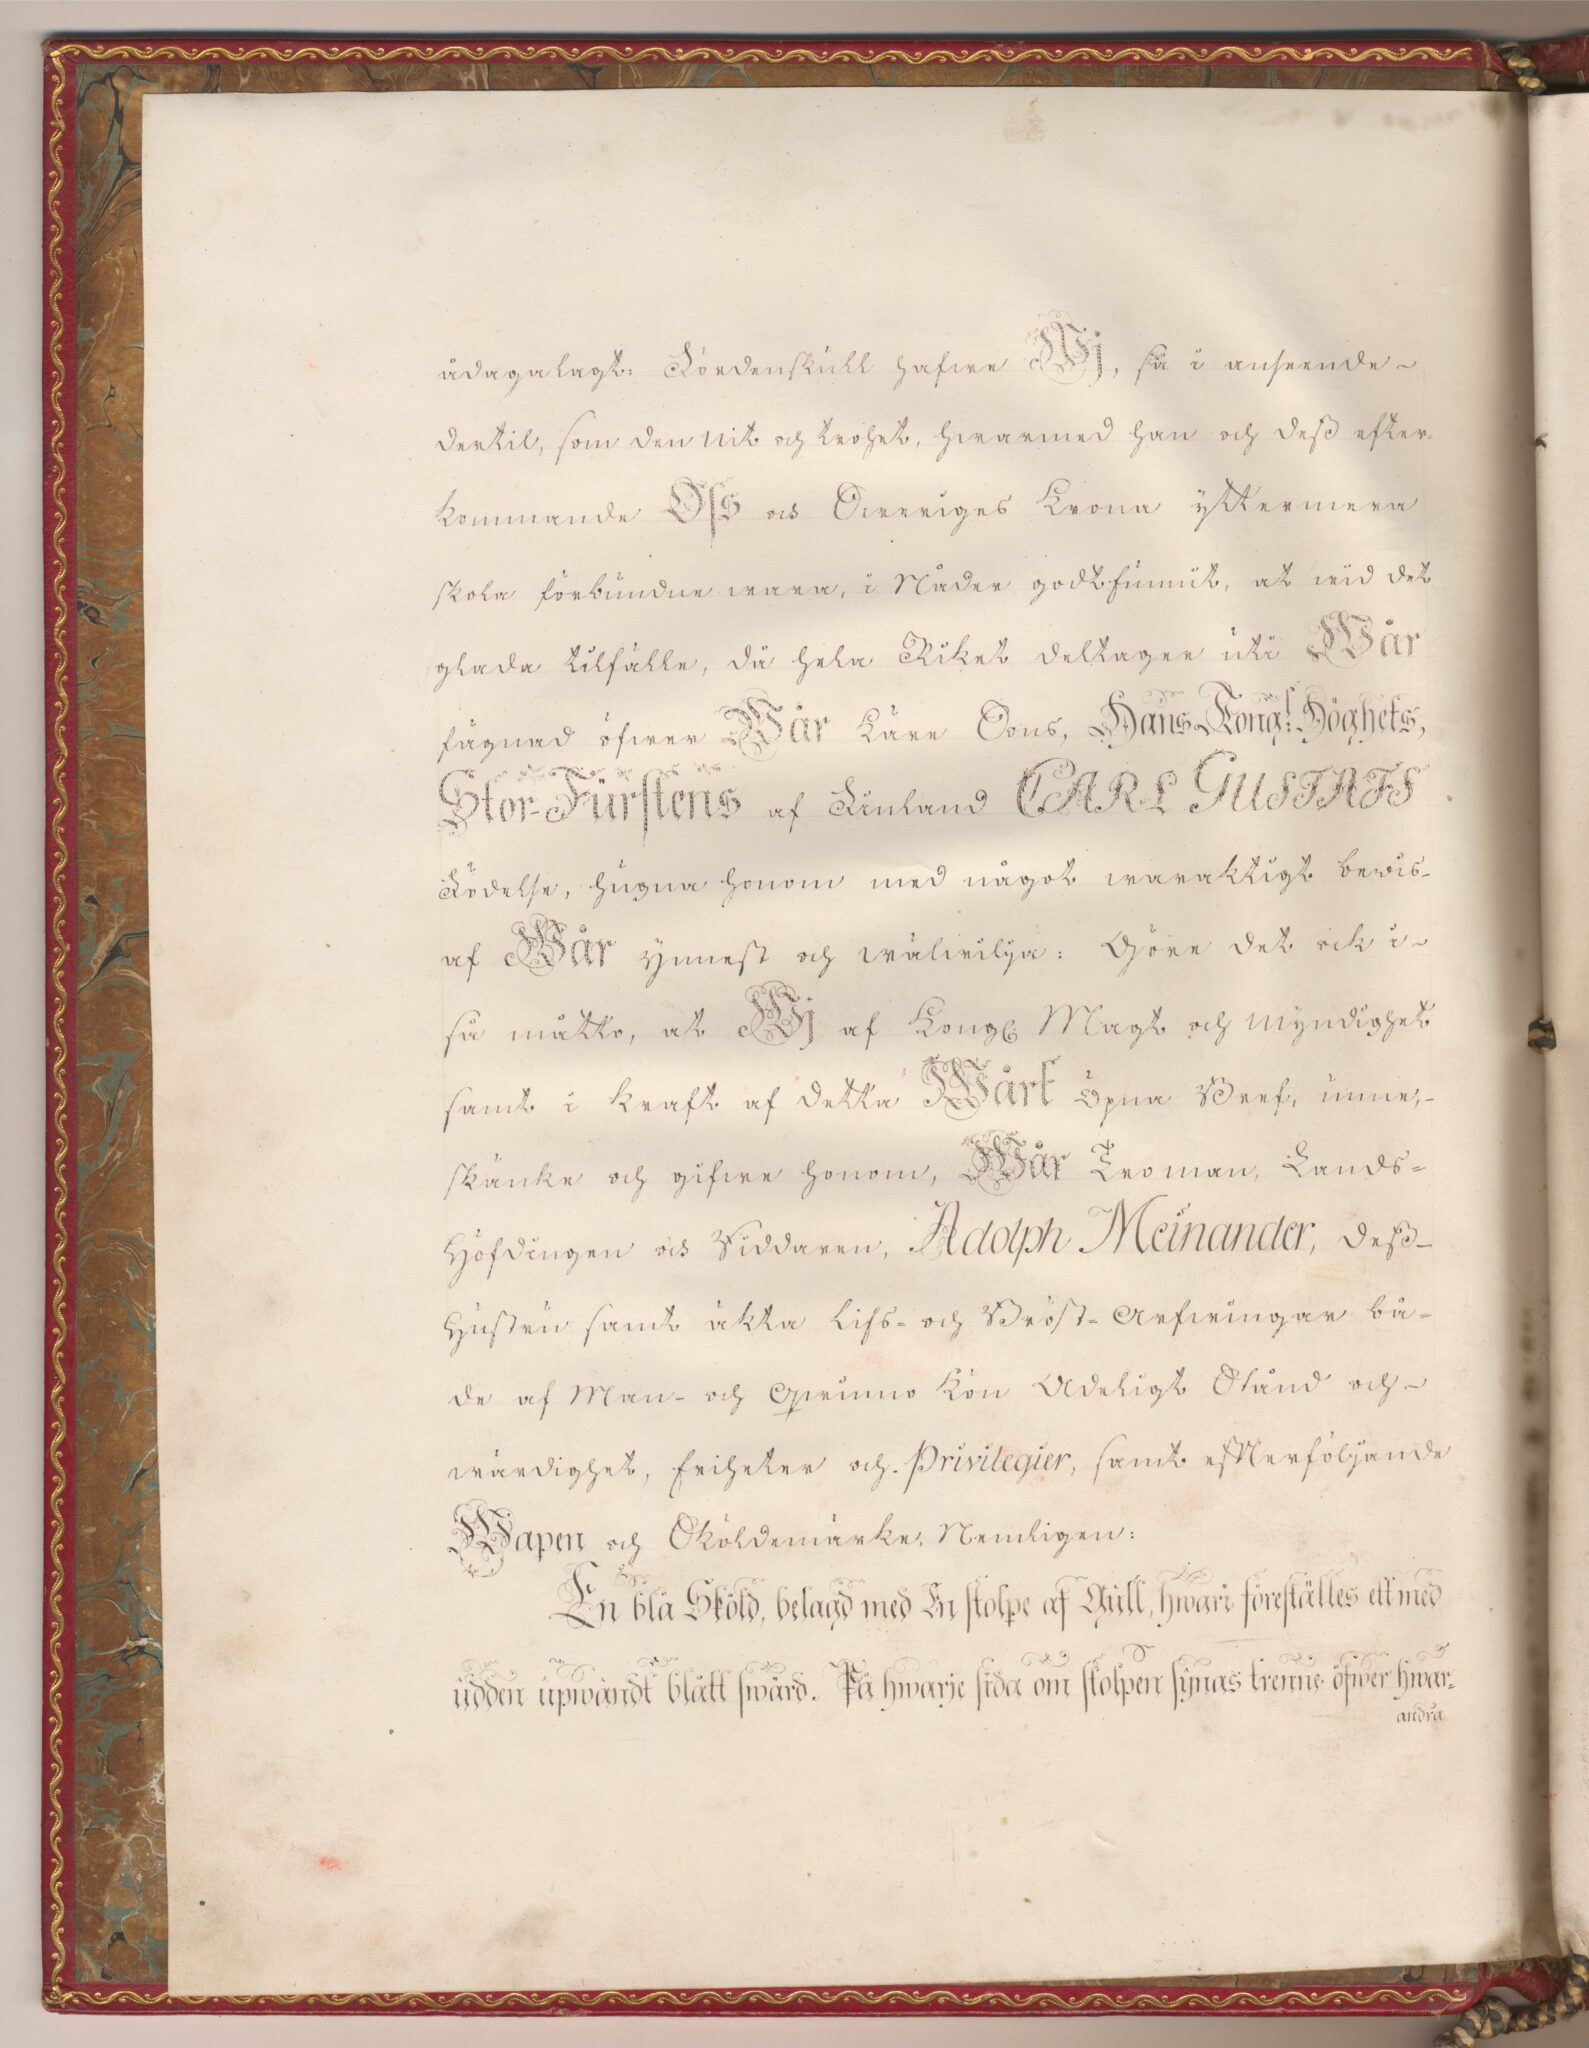 ådagalagt: Fördenskull hafwe Wj, så i anseende
dertil, som den nit och trohet, hwarmed han och deß efter-
kommande Oss och Sweriges Krona yttermera
skola förbundne wara, i Nåder godtfunnit, at wid det
glada tilfälle, då hela Riket deltager uti Wår
fägnad öfwer Wår käre Sons, Hans Kongl. Höghets,
Stor-Furstens af Finland CARL GUSTAFS
Födelse, hugna honom med något waraktigt bewis
af Wår ynnest och wälwilja: Göre det ock i
så måtto, at Wj af Kongl. Magt och myndighet
samt i kraft af detta Wårt öpna Bref, unne,
skänke och gifwe honom, Wår Troman, Lands-
Höfdingen och Riddaren, Adolph Meinander, deß
Hustru samt äkta Lifs- och Bröst-Arfwingar bå-
de af Man- och Qwinno Kön Adeligt Stånd och
wärdighet, friheter och Privilegier, samt efterföljande
Wapen och Sköldemärke, Nemligen:
En blå Sköld, belagd med En stolpe af Gull, hwari föreställes ett med
udden upwändt blått swärd. På hwarje sida om stolpen synas trenne öfwer hwar-
andra